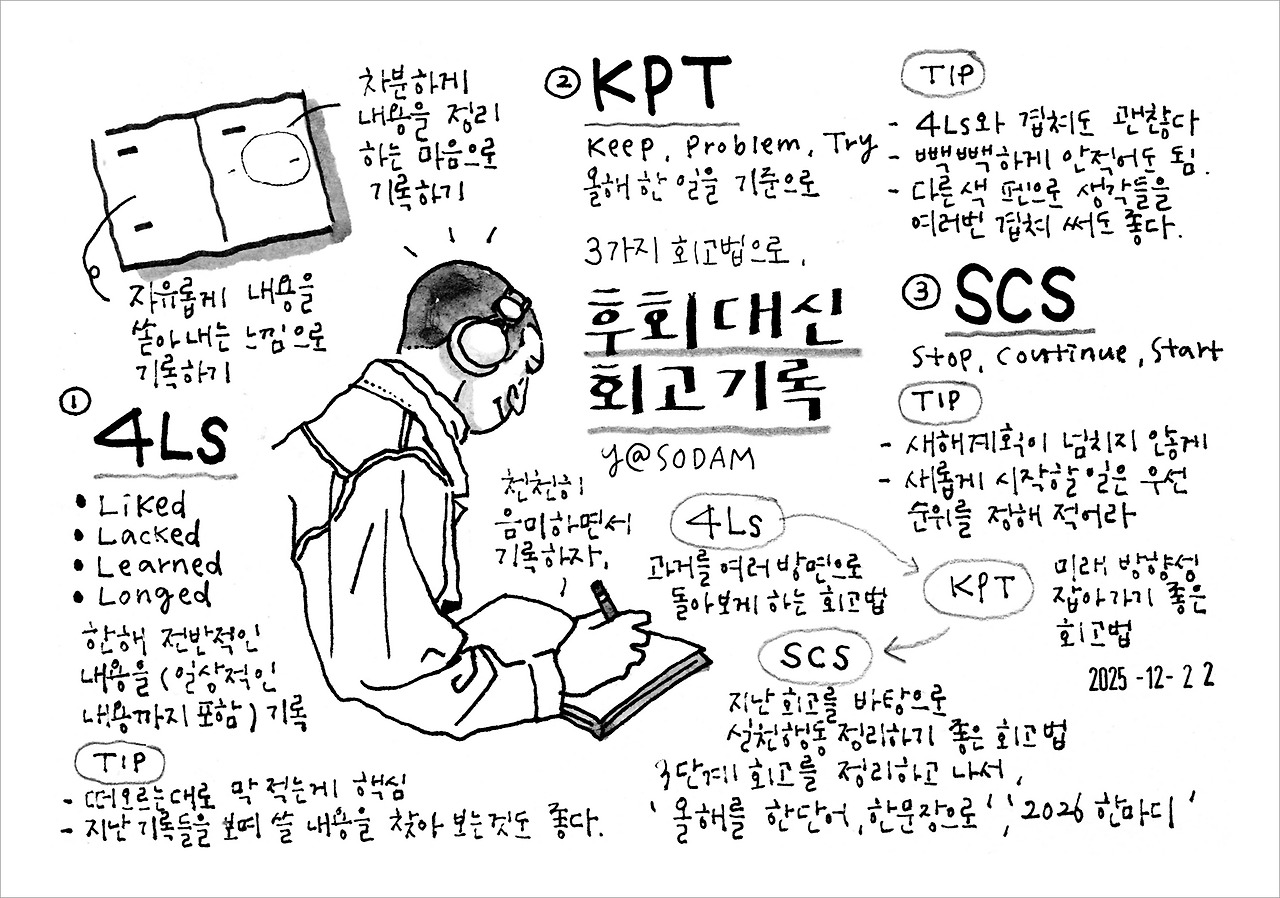 차분하게
내용을 정리
하는 마음으로
기록하기
자유롭게 내용을
쏟아내는 느낌으로
기록하기
① 4LS
• Liked
• Lacked
• Learned
• Longed
한해 전반적인
내용을 (일상적인
내용까지 포함) 기록
TIP
- 떠오르는대로 막 적는게 핵심
- 지난 기록들을 보며 쓸 내용을 찾아 보는것도 좋다.
② KPT
Keep, Problem, Try
올해 한 일을 기준으로
TIP
- 4Ls와 겹쳐도 괜찮다
- 빽빽하게 안적어도 됨.
- 다른색 펜으로 생각들을
여러번 겹쳐 써도 좋다.
3가지 회고법으로,
후회 대신
회고 기록
y@SODAM
천천히
음미하면서
기록하자.
③ SCS
Stop, Continue, Start
TIP
- 새해계획이 넘치지 않게
- 새롭게 시작할 일은 우선
순위를 정해 적어라
4Ls
과거를 여러 방면으로
돌아보게 하는 회고법
KPT
미래 방향성
잡아가기 좋은
회고법
SCS
지난 회고를 바탕으로
실천행동 정리하기 좋은 회고법
2025-12-22
3단계 회고를 정리하고 나서,
'올해를 한단어, 한문장으로', '2026 한마디'